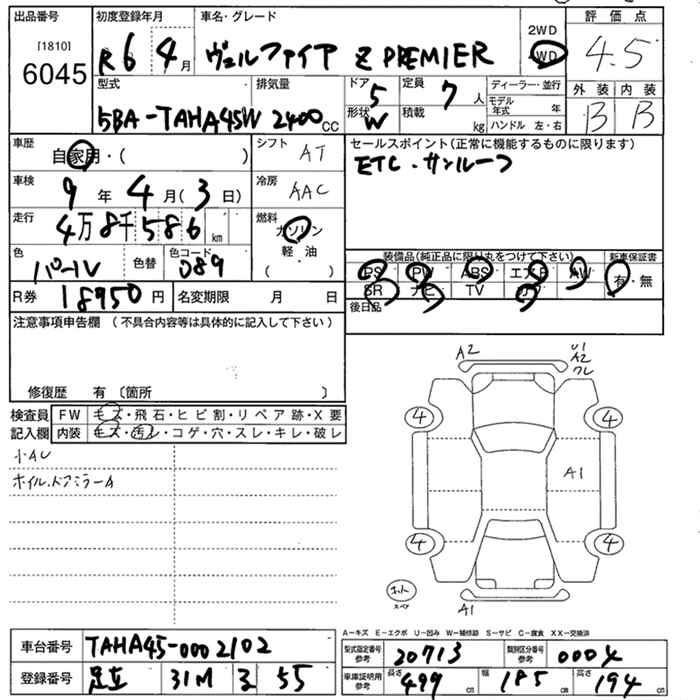 出品番号 初度登録年月 車名・グレード 2WD 評価点
[1810]
6045 R6 4月 ヴェルファイア Z PREMIER WD 4.5
型式 排気量 ドア 5 定員 7人 ディーラー・並行 外装 内装
モデル年式 年
5BA-TAHA45W 2400cc 形状 W 積載 kg ハンドル 左・右 B B
車歴 自家用・( ) シフト AT セールスポイント(正常に機能するものに限ります)
ETC・サンルーフ
車検 9年 4月(3日) 冷房 AAC
走行 4万8千586km 燃料 ガソリン
軽・油
( )
色 パール 色替 色コード 089 装備品(純正品に限り丸をつけて下さい) 新車保証書
PS PW ABS エアB AW 有・無
SR ナビ TV カワ
R券 18950円 名変期限 月 日 後日品
注意事項申告欄(不具合内容等は具体的に記入して下さい)
修復歴 有〔箇所 〕
検査員 FW キズ・飛石・ヒビ割・リペア跡・X要
記入欄 内装 キズ・汚レ・コゲ・穴・スレ・キレ・破レ
小AU
ホイル.ドアミラーA
A2 U1
A2
ワレ
4 4
A1
4 4
ホント
スペア
A1
A-キズ E-エクボ U-凹み W-補修跡 S-サビ C-腐食 XX-交換済
車台番号 TAHA45-0002102 型式指定番号 参考 20713 類別区分番号 参考 0004
登録番号 足立 31M る 55 車庫証明用 参考 長さ 499cm 幅 185cm 高さ 194cm